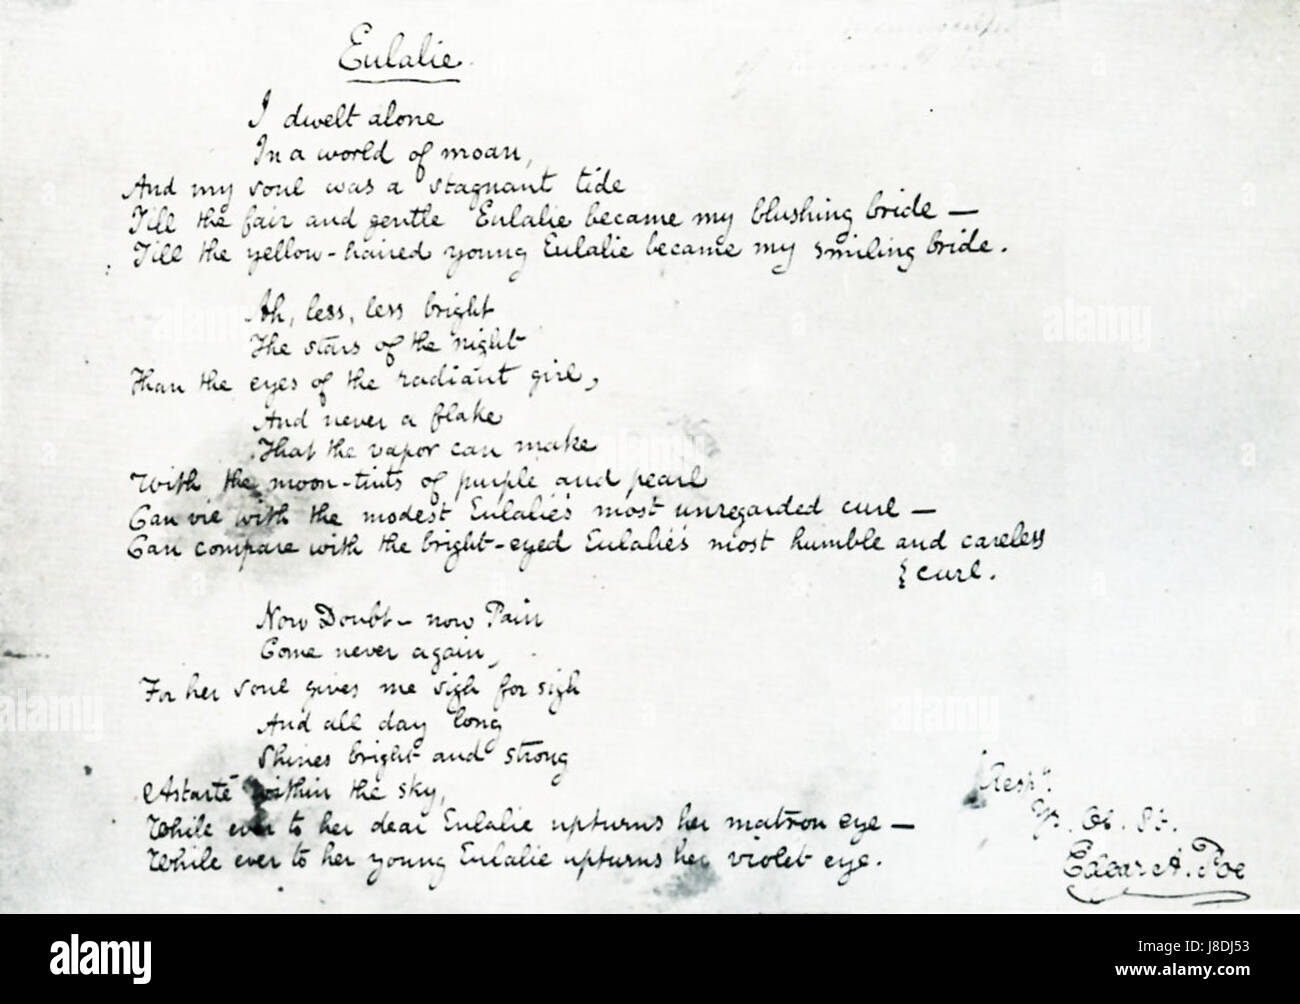 Eulalie.
I dwelt alone
In a world of moan,
And my soul was a stagnant tide
Till the fair and gentle Eulalie became my blushing bride —
Till the yellow-haired young Eulalie became my smiling bride.
Ah, less, less bright
The stars of the night
Than the eyes of the radiant girl,
And never a flake
That the vapor can make
With the moon-tints of purple and pearl
Can vie with the modest Eulalie's most unregarded curl —
Can compare with the bright-eyed Eulalie's most humble and careless
{ curl.
Now Doubt — now Pain
Come never again,
For her soul gives me sigh for sigh
And all day long
Shines bright and strong
Astarté within the sky,
While ever to her dear Eulalie upturns her matron eye —
While ever to her young Eulalie upturns her violet eye.
Respy.
Yr. Ob. St.
Edgar A. Poe
alamy
Image ID: J8DJ53
www.alamy.com